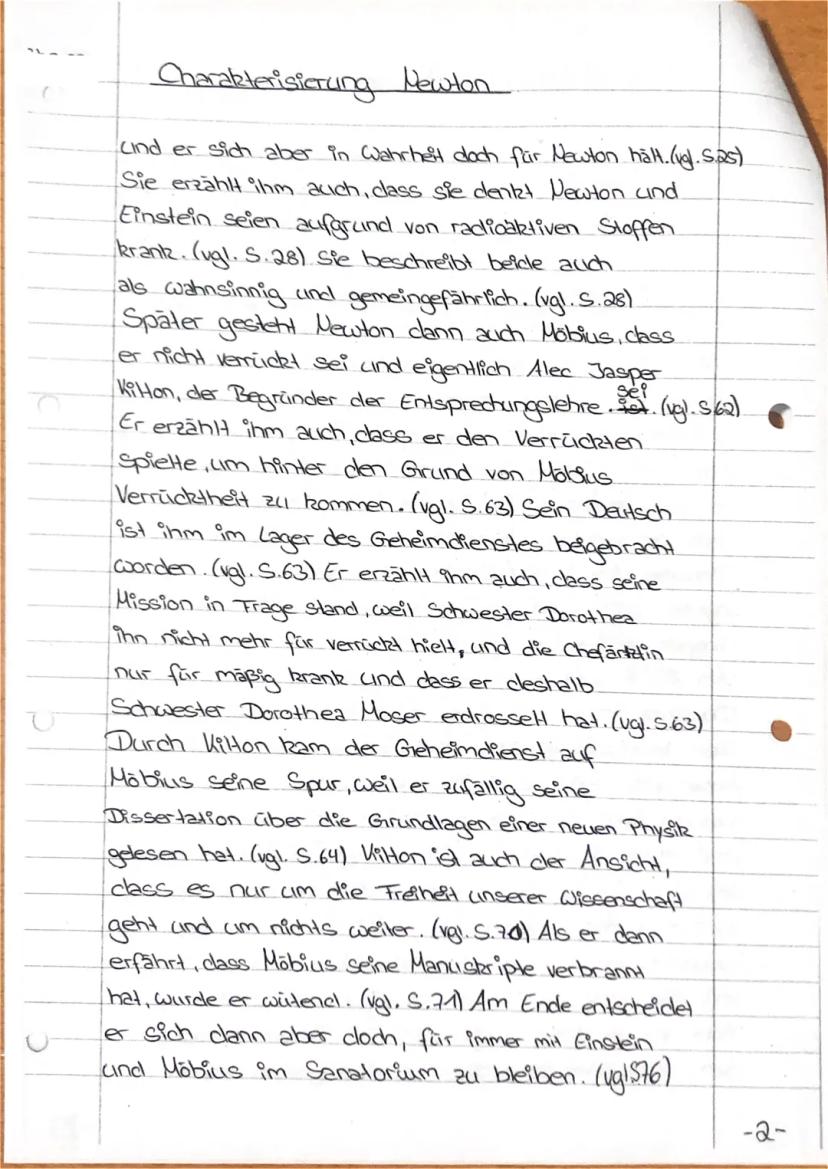 Charakterisierung Newton
und er sich aber in Wahrheit doch für Newton hält. (vgl. S.25)
Sie erzählt ihm auch, dass sie denkt Newton und
Einstein seien aufgrund von radioaktiven Stoffen
krank. (vgl. S. 28) Sie beschreibt beide auch
als wahnsinnig und gemeingefährlich. (vgl. S. 28)
Später gesteht Newton dann auch Möbius, dass
er nicht verrückt sei und eigentlich Alec Jasper
sei
Kilton, der Begründer der Entsprechungslehre. ist. (vgl. S.62)
Er erzählt ihm auch, dass er den Verrückten
spielte, um hinter den Grund von Möbius
Verrücktheit zu kommen. (vgl. S. 63) Sein Deutsch
ist ihm im Lager des Geheimdienstes beigebracht
worden. (vgl. S.63) Er erzählt ihm auch, dass seine
Mission in Frage stand, weil Schwester Dorothea
ihn nicht mehr für verrückt hielt, und die Chefärztin
nur für mäßig krank und dass er deshalb
Schwester Dorothea Moser erdrosselt hat. (vgl. S.63)
Durch Kilton kam der Geheimdienst auf
Möbius seine Spur, weil er zufällig seine
Dissertation über die Grundlagen einer neuen Physik
gelesen hat. (vgl. S. 64) Kilton ist auch der Ansicht,
dass es nur um die Freiheit unserer Wissenschaft
geht und um nichts weiter. (vgl. S.70) Als er dann
erfährt, dass Möbius seine Manuskripte verbrannt
hat, wurde er wütend. (vgl. S. 71) Am Ende entscheidet
er sich dann aber doch, für immer mit Einstein
und Möbius im Sanatorium zu bleiben. (vgl S76)
-2-